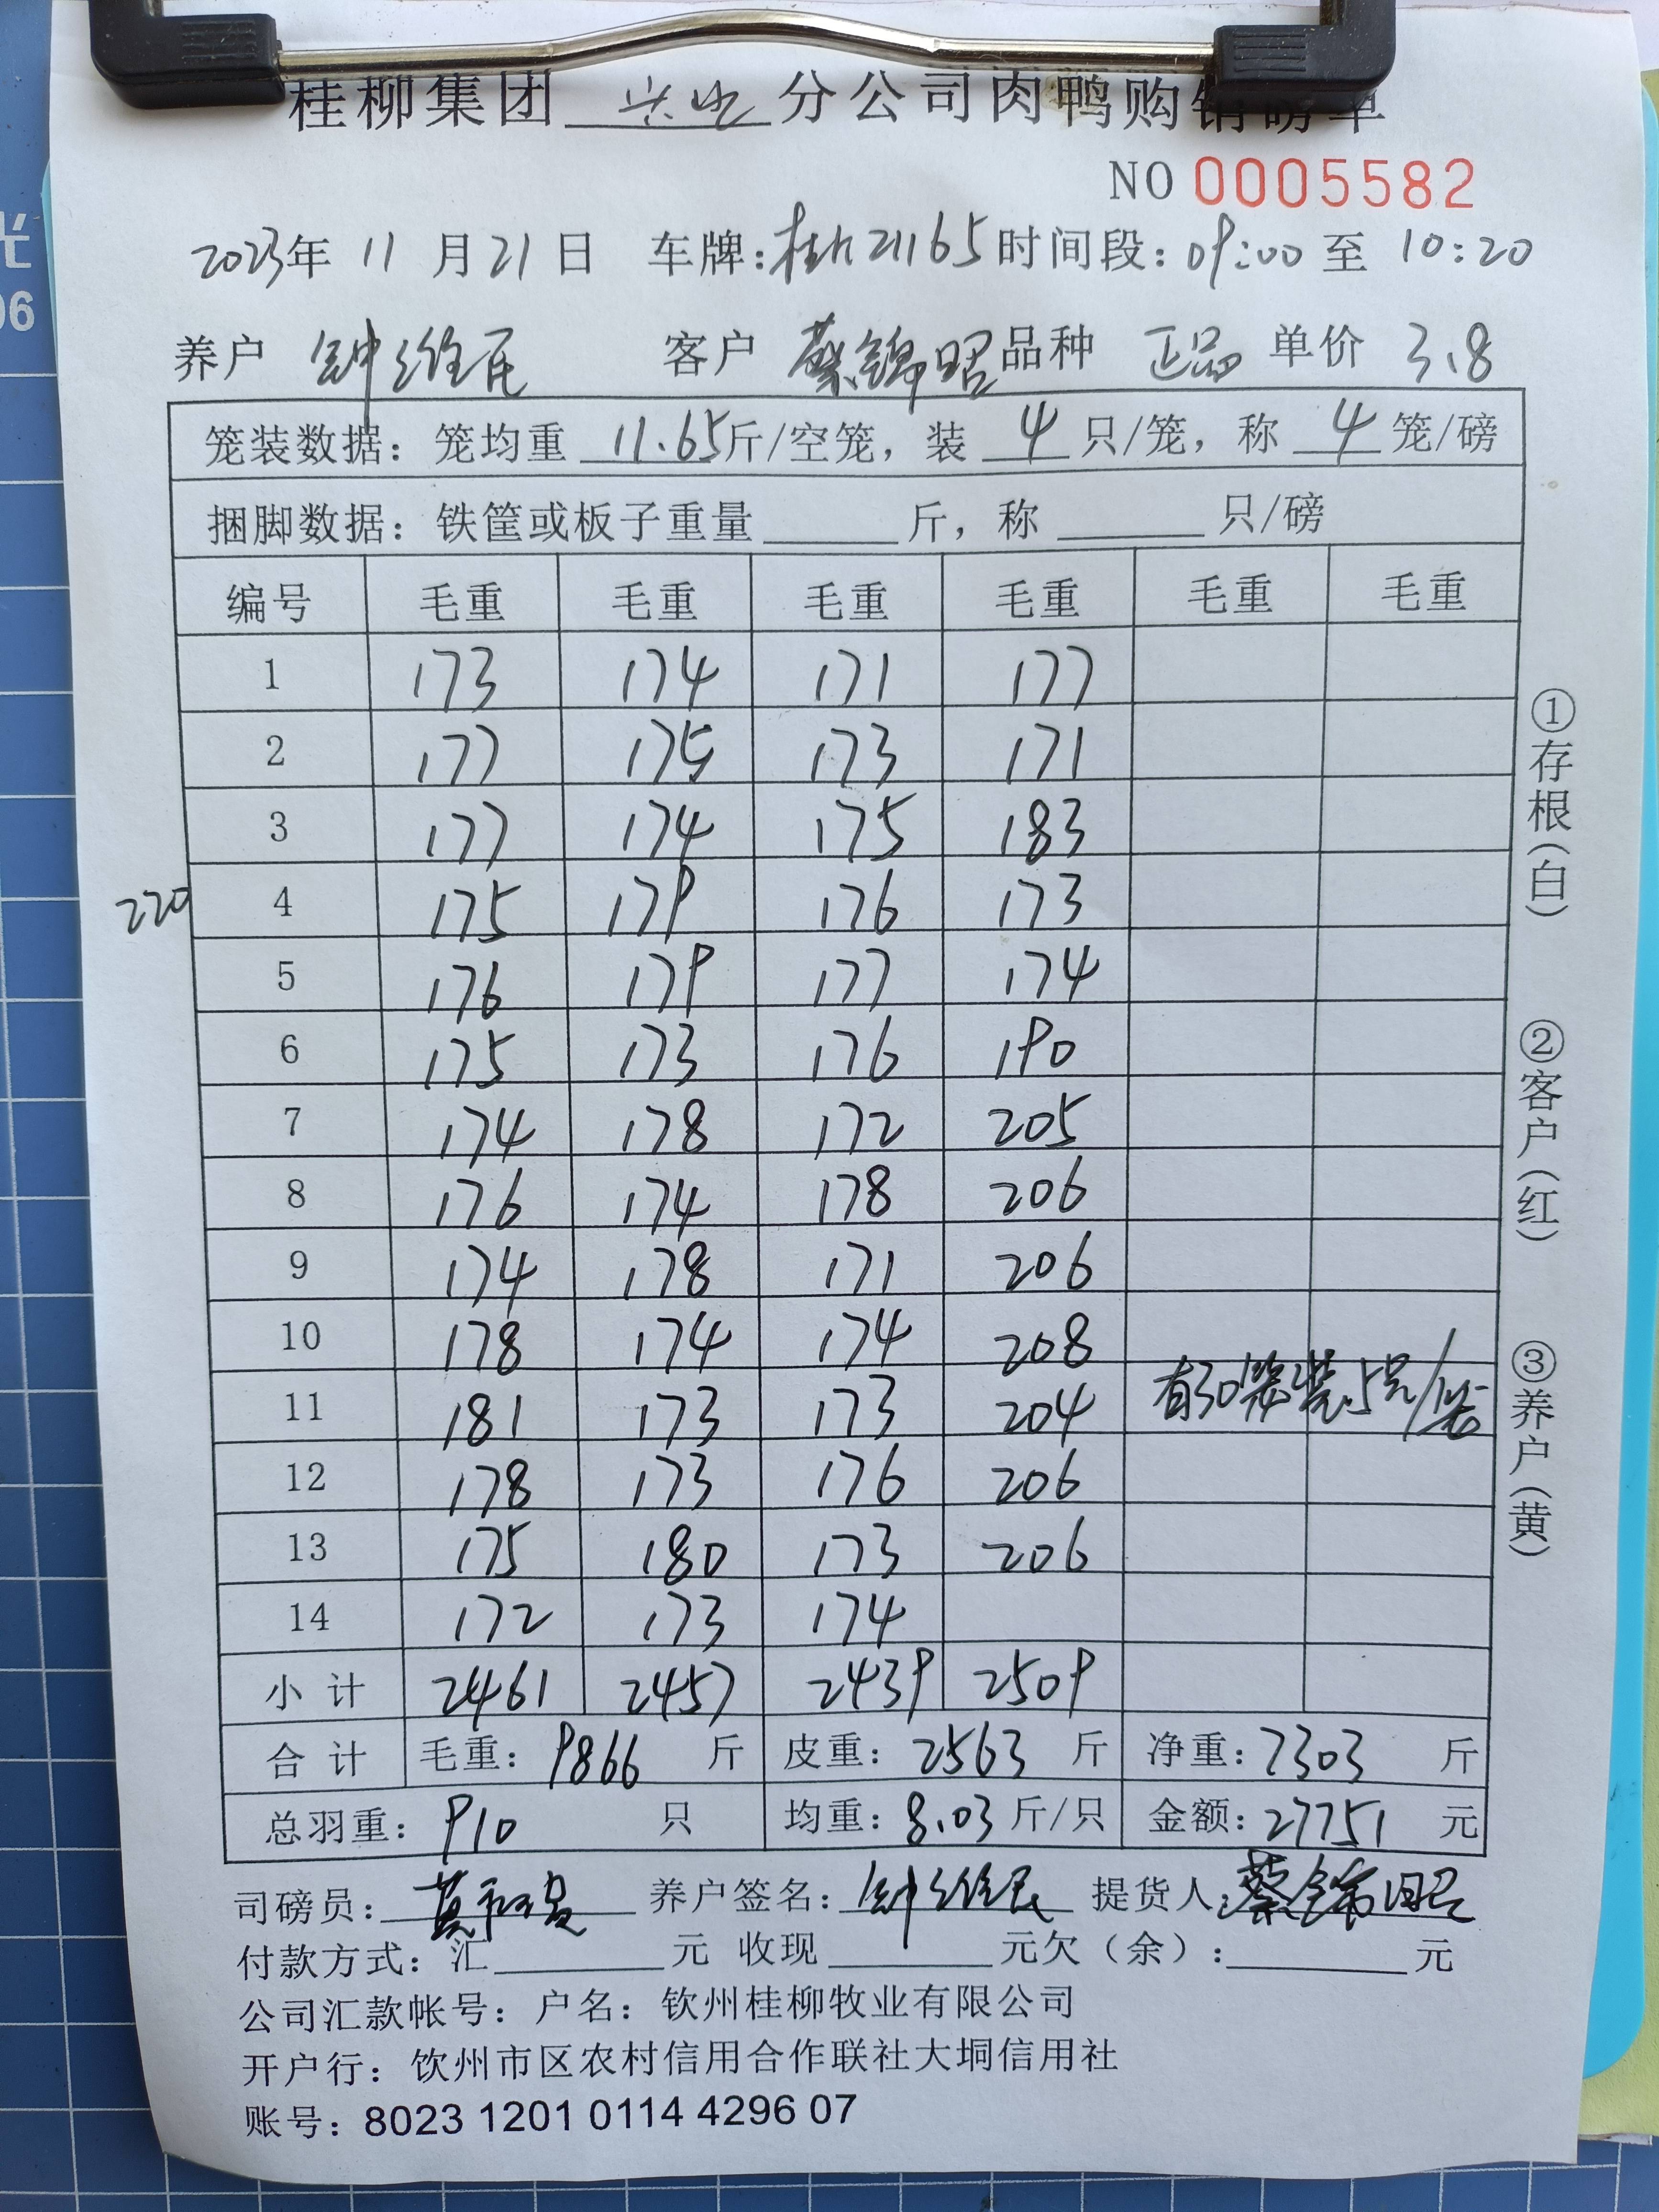 桂柳集团 兴业 分公司肉鸭购销磅单
NO 0005582
2023年 11 月 21 日 车牌:桂 21165 时间段: 09:00 至 10:20
养户 钟维民 客户 蔡锦昭 品种 正品 单价 3.8
笼装数据: 笼均重 11.65 斤/空笼, 装 4 只/笼, 称 4 笼/磅
捆脚数据: 铁筐或板子重量 斤, 称 只/磅
编号 毛重 毛重 毛重 毛重 毛重 毛重
1 173 174 171 177
2 177 175 173 171
3 177 174 175 183
220 4 175 179 176 173
5 176 179 177 174
6 175 173 176 190
7 174 178 172 205
8 176 174 178 206
9 174 178 171 206
10 178 174 174 208
11 181 173 173 204 有30笼装5只/笼
12 178 173 176 206
13 175 180 173 206
14 172 173 174
小 计 2461 2457 2439 2509
合 计 毛重: 9866 斤 皮重: 2563 斤 净重: 7303 斤
总羽重: 910 只 均重: 8.03 斤/只 金额: 27751 元
司磅员: 养户签名: 钟维民 提货人: 蔡锦昭
付款方式: 汇 元 收现 元欠(余): 元
公司汇款帐号: 户名: 钦州桂柳牧业有限公司
开户行: 钦州市区农村信用合作联社大垌信用社
账号: 8023 1201 0114 4296 07
①存根(白)
②客户(红)
③养户(黄)
光
06